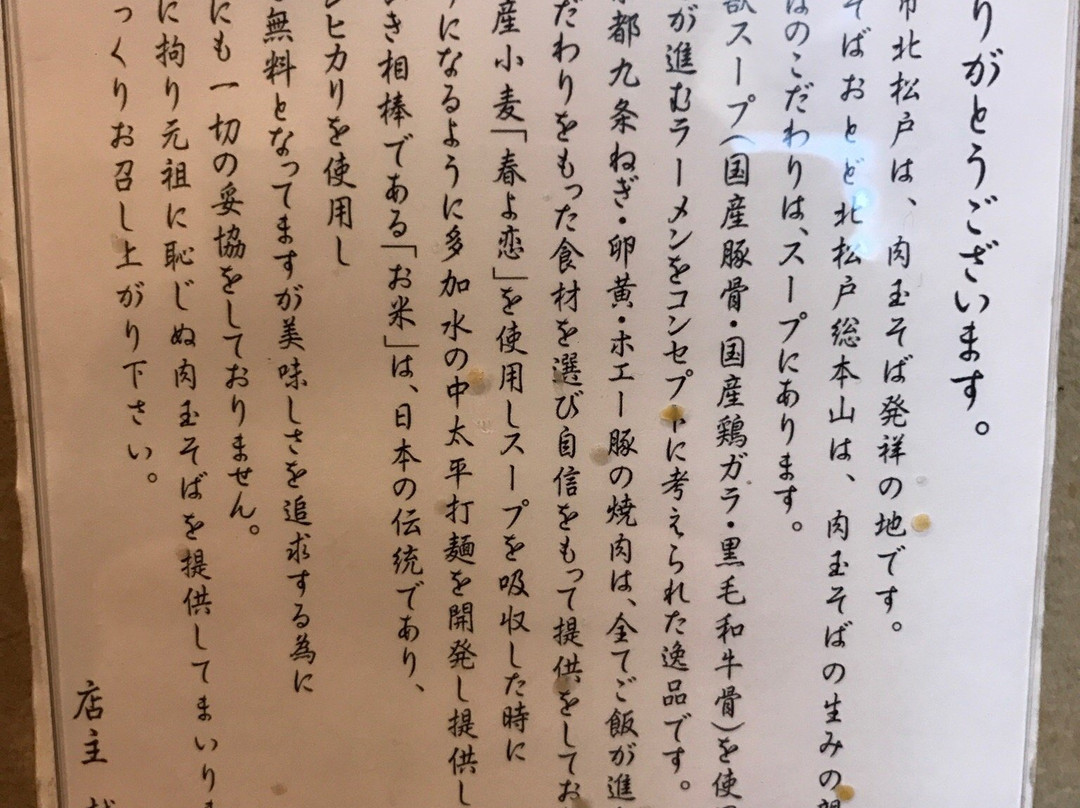 りがとうございます。
市北松戸は、肉玉そば発祥の地です。
そばおとど北松戸総本山は、肉玉そばの生みの
はのこだわりは、スープにあります。
スープ(国産豚骨・国産鶏ガラ・黒毛和牛骨)を使
が進むラーメンをコンセプトに考えられた逸品です。
都九条ねぎ・卵黄・ホエー豚の焼肉は、全てご飯が進
だわりをもった食材を選び自信をもって提供をしてお
産小麦「春よ恋」を使用しスープを吸収した時に
りになるように多加水の中太平打麺を開発し提供し
き相棒である「お米」は、日本の伝統であり、
ヒカリを使用し
無料となってますが美味しさを追求する為に
にも一切の妥協をしておりません。
に拘り元祖に恥じぬ肉玉そばを提供してまいり
っくりお召し上がり下さい。
店主